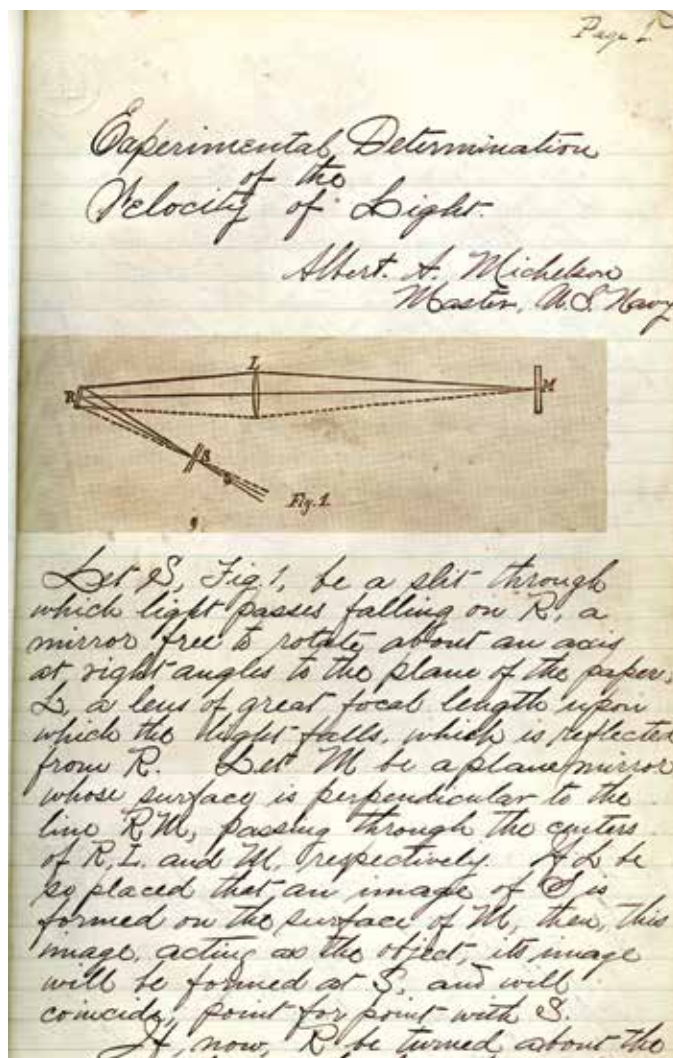 Page 1.
Experimental Determination
of the
Velocity of Light.
Albert. A. Michelson
Master, U.S. Navy
L
R
M
S
Fig. 1.
Let S, Fig. 1, be a slit through
which light passes falling on R, a
mirror free to rotate about an axis
at right angles to the plane of the paper.
L, a lens of great focal length upon
which the light falls, which is reflected
from R. Let M be a plane mirror
whose surface is perpendicular to the
line R M, passing through the centers
of R, L. and M, respectively. If L be
so placed that an image of S is
formed on the surface of M, then, this
image, acting as the object, its image
will be formed at S, and will
coincide, point for point with S.
If, now, R be turned about the